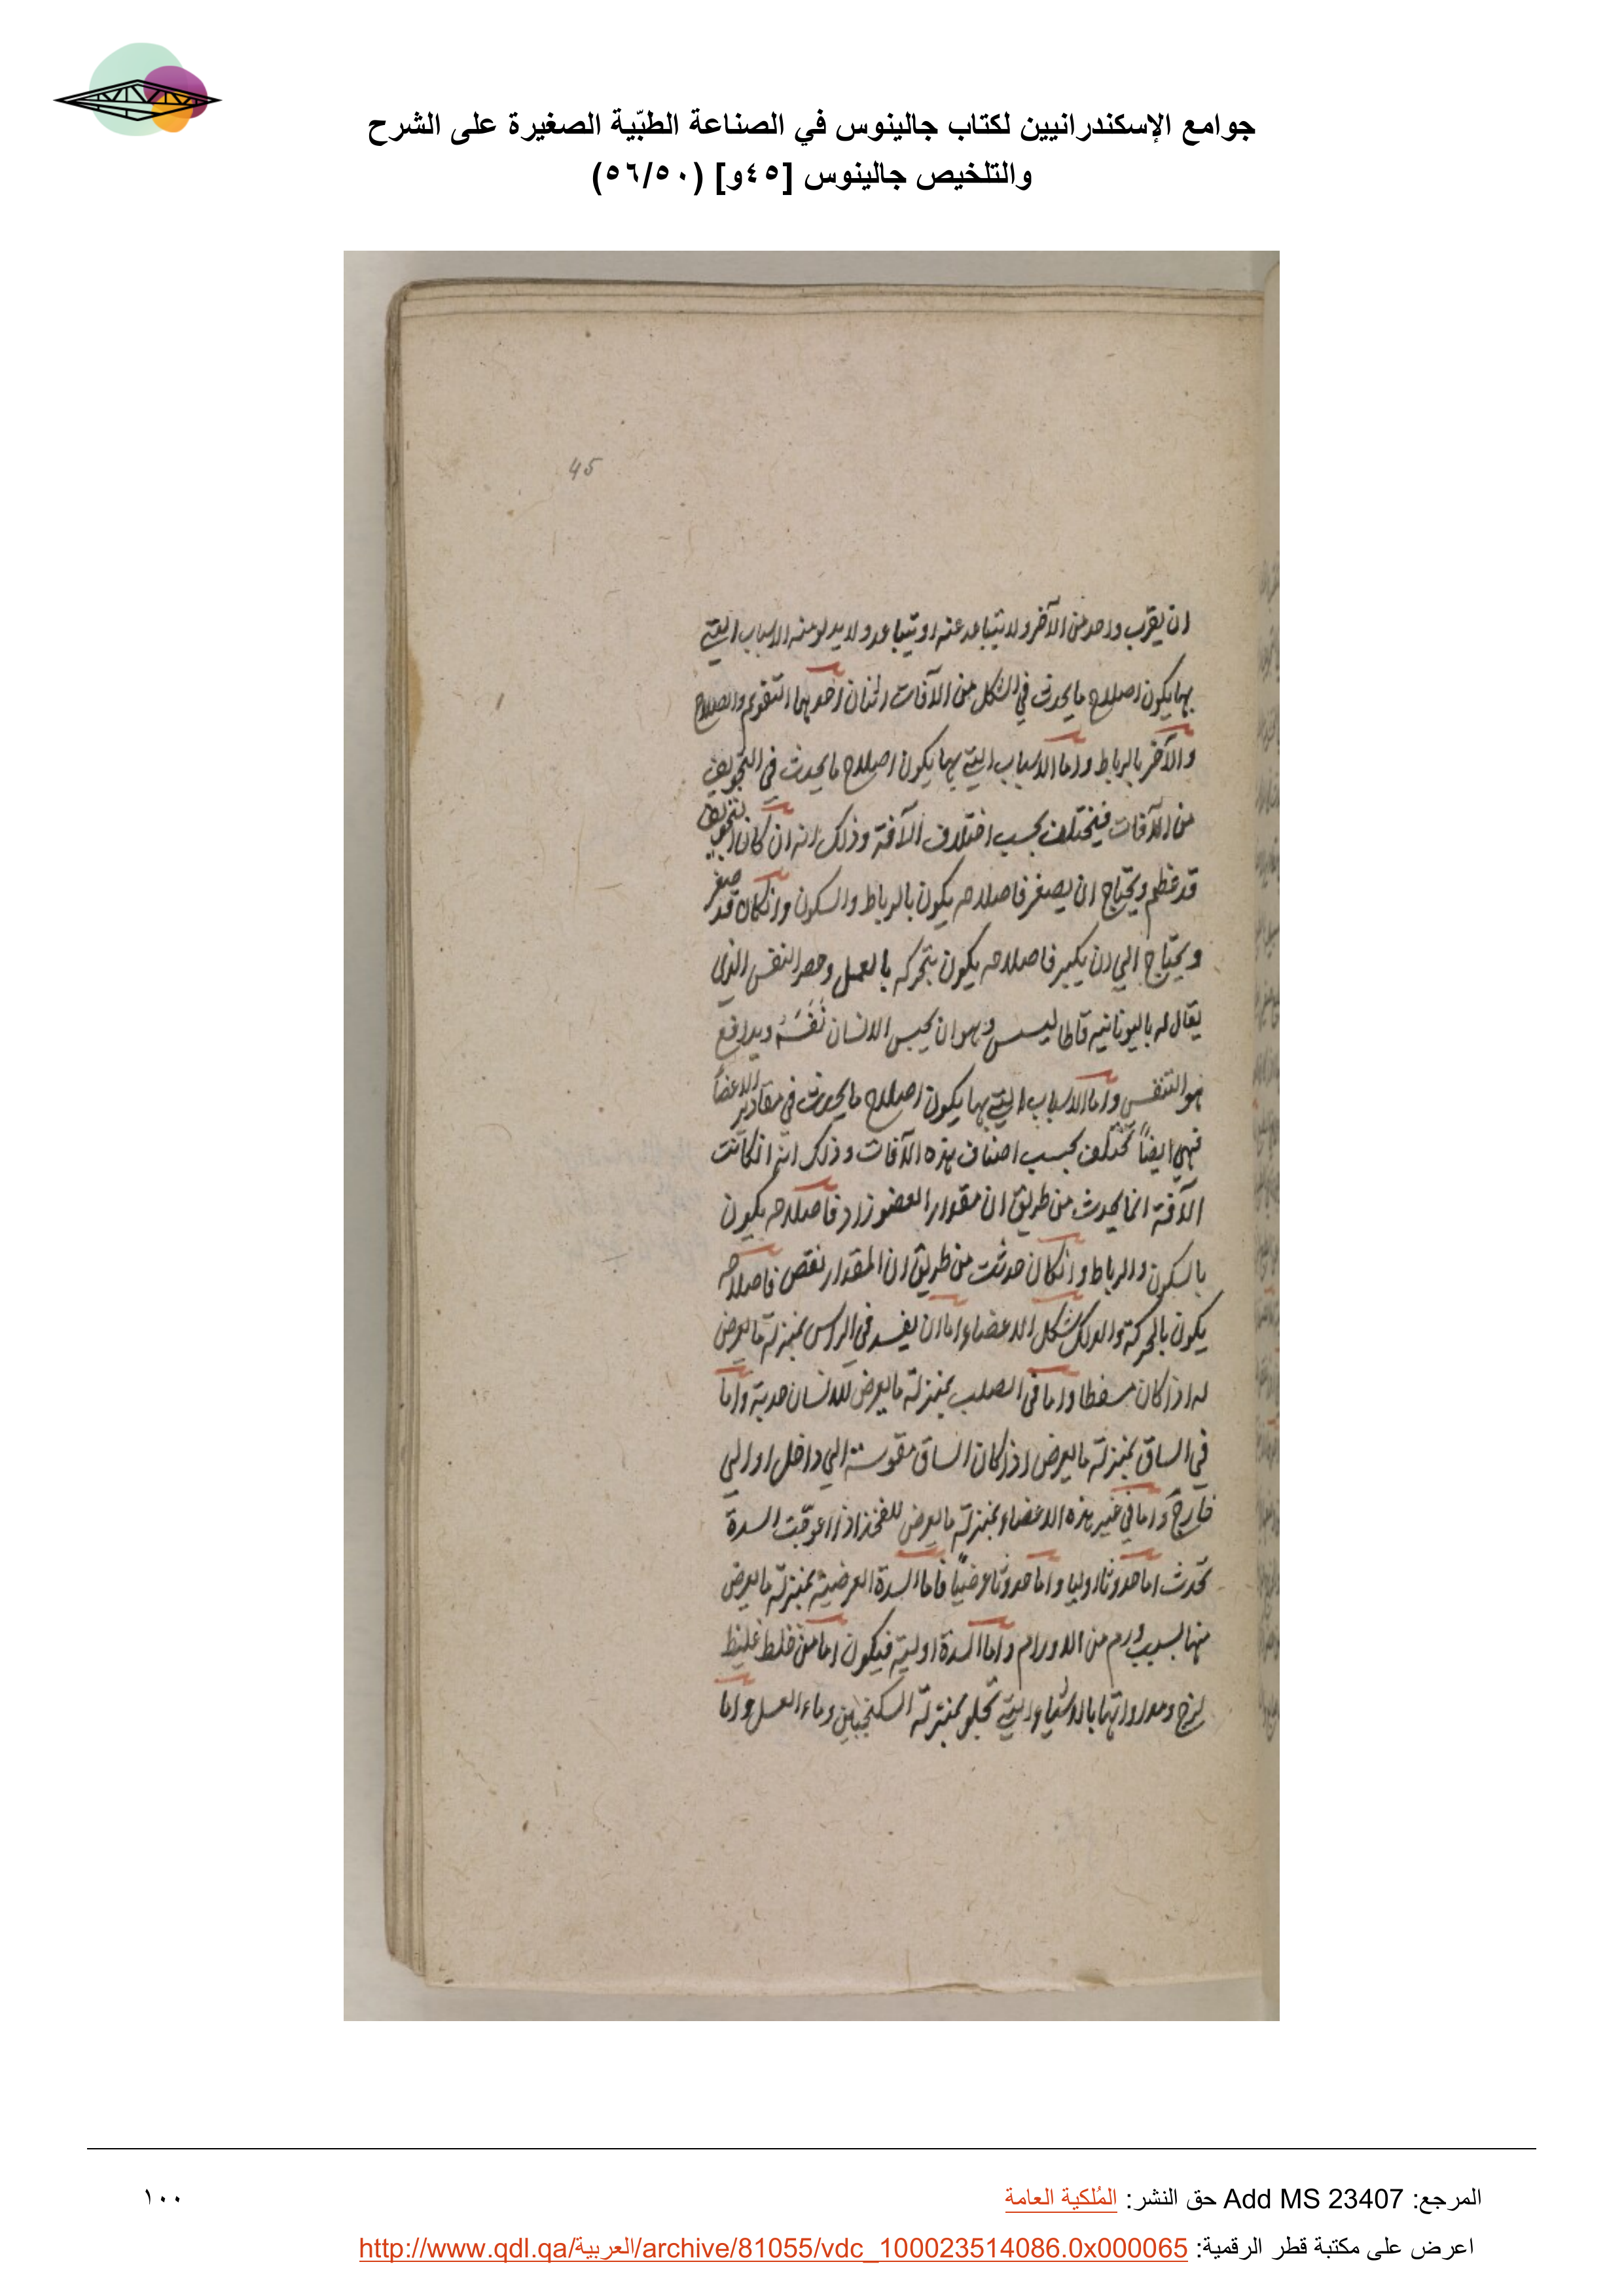 جوامع الإسكندرانيين لكتاب جالينوس في الصناعة الطبّية الصغيرة على الشرح
والتلخيص جالينوس [٤٥و] (٥٦/٥٠)
45
ان يقرب واحد من الآخر ولا يتباعد عنه او يتباعد ولا يدلو منه الاسباب التي
بها يكون اصلاح ما يحدث في الشكل من الآفات اثنان احدهما التقويم والصلاح
والآخر بالرباط واما الاسباب التي بها يكون اصلاح ما يحدث في التجويف
من الآفات فيختلف بحسب اختلاف الآفة وذلك انه ان كان التجويف
قد عظم ويحتاج ان يصغر فاصلاحه يكون بالرباط والسكون وانكان قد صغر
ويحتاج الي ان يكبر فاصلاحه يكون بتحركه بالعمل وحصر النفس الذي
يقال له باليونانيه قاطاليسس وهو ان يحبس الانسان نَفَسَهُ ويدافع
هو التنفس واما الاسباب التي بها يكون اصلاح ما يحدث في مقادير الاعضا
فهي ايضاً تختلف بحسب اصناف هذه الآفات وذلك انه انكانت
الآفة انما يحدث من طريق ان مقدار العضو زاد فاصلاحه يكون
بالسكون والرباط وانكان حدثت من طريق ان المقدار نقص فاصلاحه
يكون بالحركة والدلك شكل الاعضاء اما ان يفسد في الراس بمنزلة ما يعرض
له اذا كان مسفطا واما في الصلب بمنزلة ما يعرض للانسان حدبة واما
في الساق بمنزلة ما يعرض اذا كان الساق مقوسة الي داخل او الي
خارج واما في غير هذه الاعضاء بمنزلة ما يعرض للفخذ اذا اعوقت السدة
تحدث اما حدوثا اوليا واما حدوثا عرضيّاً فاما السدة العرضية بمنزلة ما يعرض
منها بسبب ورم من الاورام واما السدة اولية فيكون اما من خلط غليظ
لزج ومداواتها بالاشياء التي تجلو بمنزلة السكنجبين وماء العسل واما
المرجع: Add MS 23407 حق النشر: المُلكية العامة
١٠٠
اعرض على مكتبة قطر الرقمية: http://www.qdl.qa/العربية/archive/81055/vdc_100023514086.0x000065